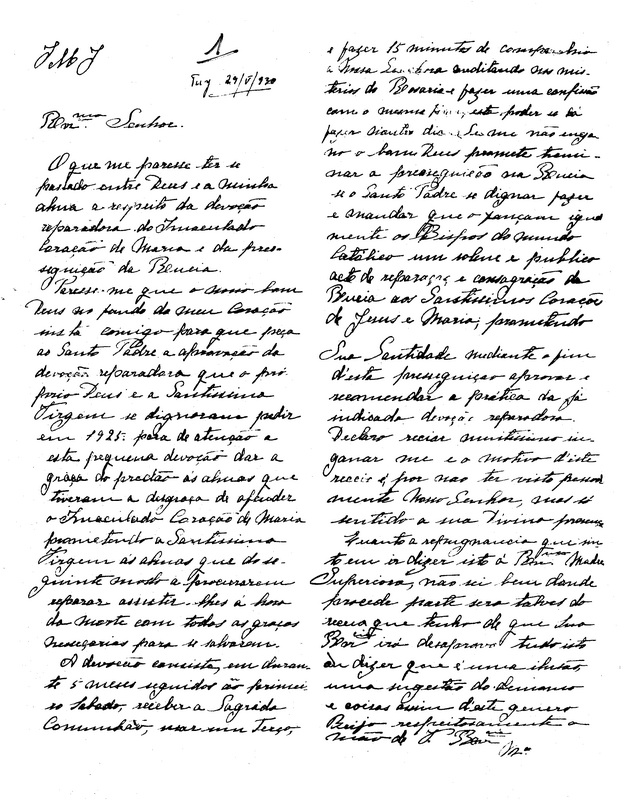 J M J
1
Tuy 29/V/930
Rem.mo Senhor.
O que me paresse ter-se
passado entre Deus e a minha
alma a respeito da devoção
reparadora do Imaculado
Coração de Maria e da pres-
seguição da Rucia.
Paresse-me que o nosso bom
Deus no fundo do meu coração
insta comigo para que peça
ao Santo Padre a aprovação da
devoção reparadora que o pró
prio Deus e a Santissima
Virgem se dignaram pedir
em 1925. para de atenção a
esta pequena devoção dar a
graça do perdão ás almas que
tiveram a disgraça de ofender
o Imaculado Coração de Maria
prometendo a Santissima
Virgem ás almas que do se-
guinte modo a procurarem
reparar assistir-lhes á hora
da morte com todas as graças
nesseçarias para se salvarem.
A devoção consiste, em duran-
te 5 meses seguidos ao primei
ro sabado, receber a Sagrada
Comunhão, rezar um Terço,
e fazer 15 minutos de companhia
a Nossa Senhora meditando nos mis-
terios do Rosario e fazer uma confição
com o mesmo fim, esta poder-se há
fazer dia Se me não enga
no o bom Deus promete termi-
nar a presseguição na Rucia
se o Santo Padre se dignar fazer
e mandar que o façam igual
mente os Bispos do mundo
Catolico um solene e publico
acto de reparação e consagração da
Rucia aos Santissimos Corações
de Jesus e Maria, prometendo
Sua Santidade mediante o fim
d'esta presseguição aprovar e
recomendar a prática da já
indicada devoção reparadora.
Declaro reciar muitissimo in-
ganar me e o motivo d'éste
receio é por não ter visto pessoal
mente Nosso Senhor, mas só
sentido a sua Divina presença
Quanto a repugnancia que sin
to em ir dizer isto á Rev. Madre
Superiora, não sei bem donde
procede parte sera talves do
receio que tenho de que Sua
Rev irá desaprovar tudo isto
ou dizer que é uma ilusão
uma sugestão do demonio
e coisas assim d'éste genero
Beijo respeitosamente a
mão de V. Rev.cia